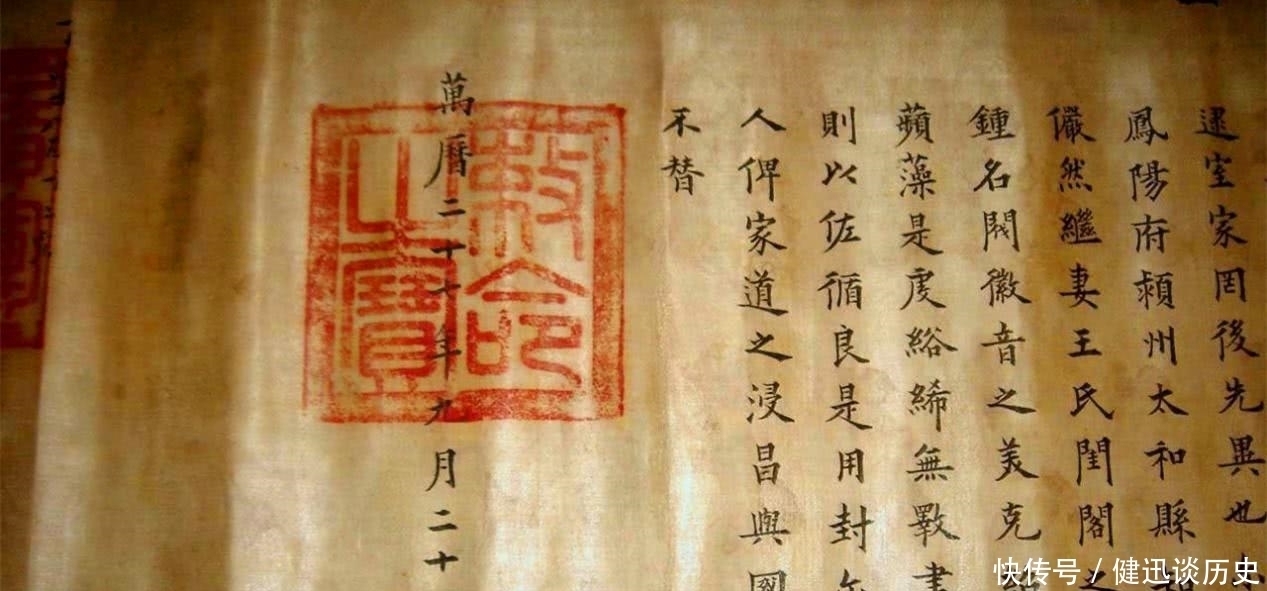 逮室家罔後先異也
鳳陽府潁州太和縣知
儼然繼妻王氏閨閣之
鍾名閥徽音之美克
蘋藻是虔綌絺無斁書
則以佐循良是用封
人俾家道之浸昌與國
不替
萬曆二十七年九月二十
敕命之寶
快传号 / 健迅谈历史